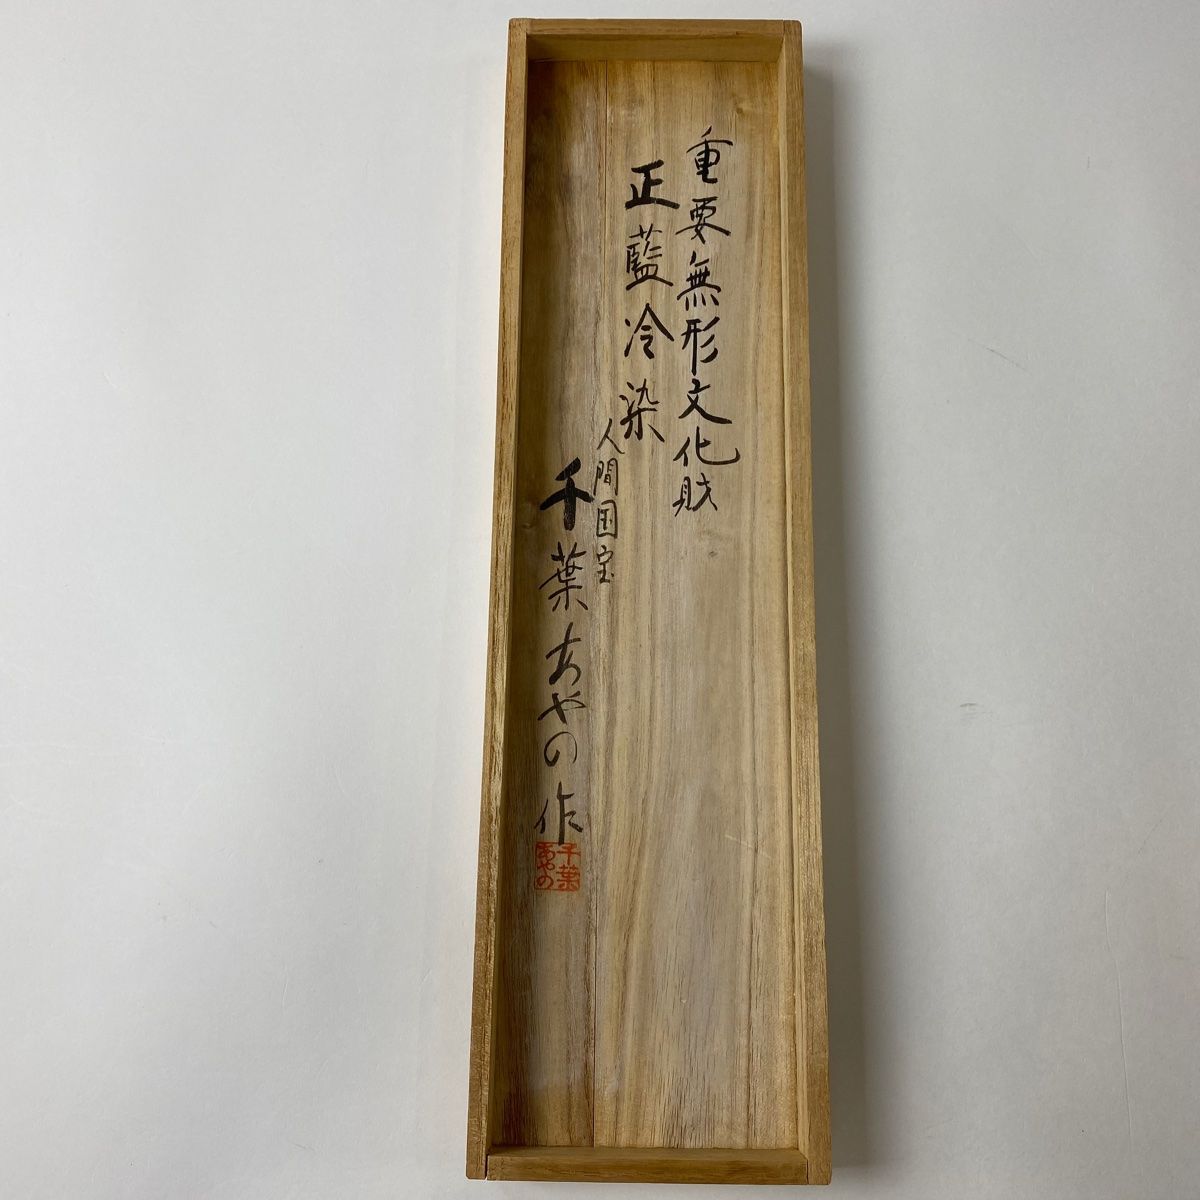 重要無形文化財
正藍冷染
人間国宝
千葉あやの作
千葉
あやの